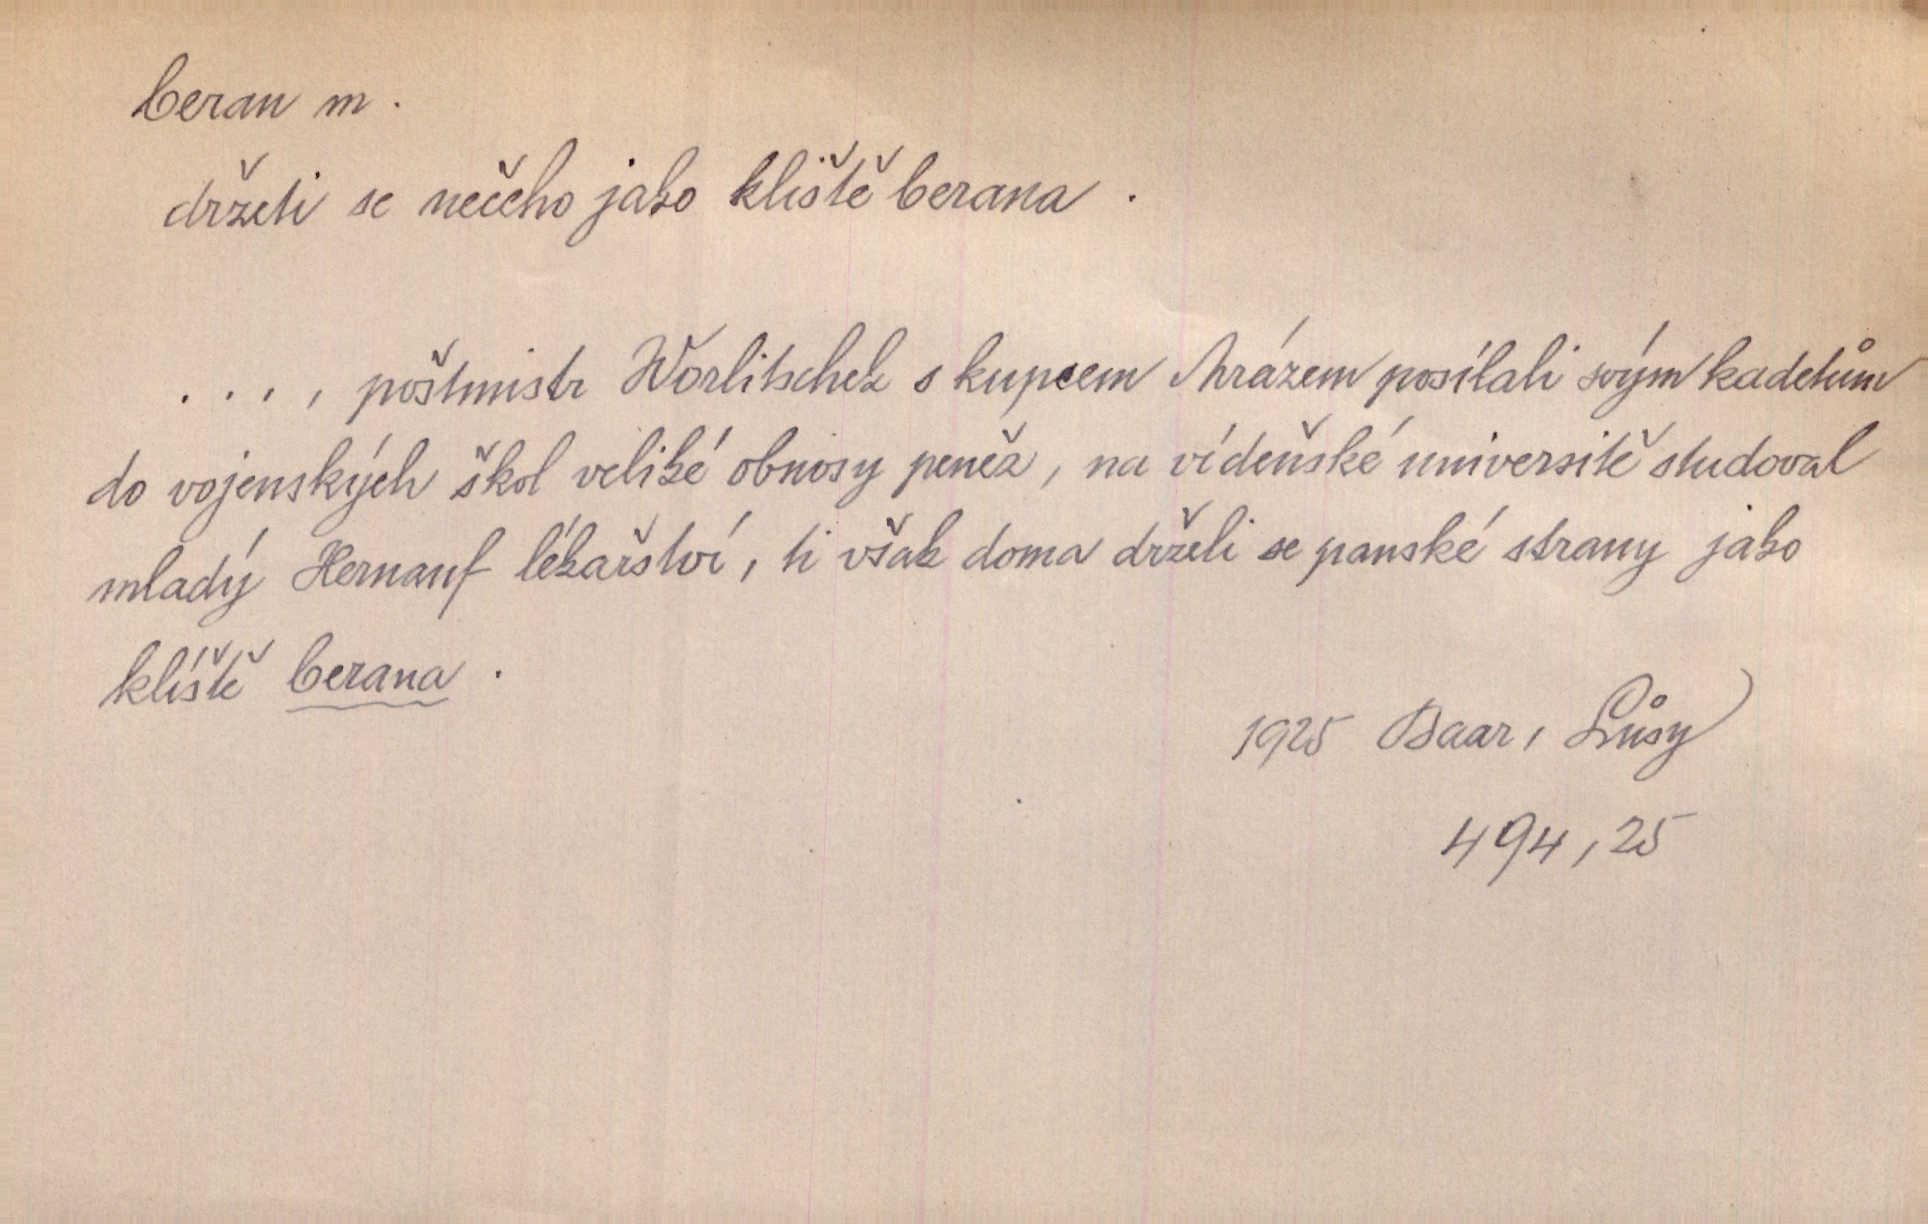 beran m.
držeti se něčeho jako klíště berana.
..., poštmistr Worlitschek s kupcem Mrázem posílali svým kadetům
do vojenských škol veliké obnosy peněz, na vídeňské universitě studoval
mladý Hernauf lékařství, ti však doma drželi se panské strany jako
klíště berana.
1925 Baar, Lůsy
494,25